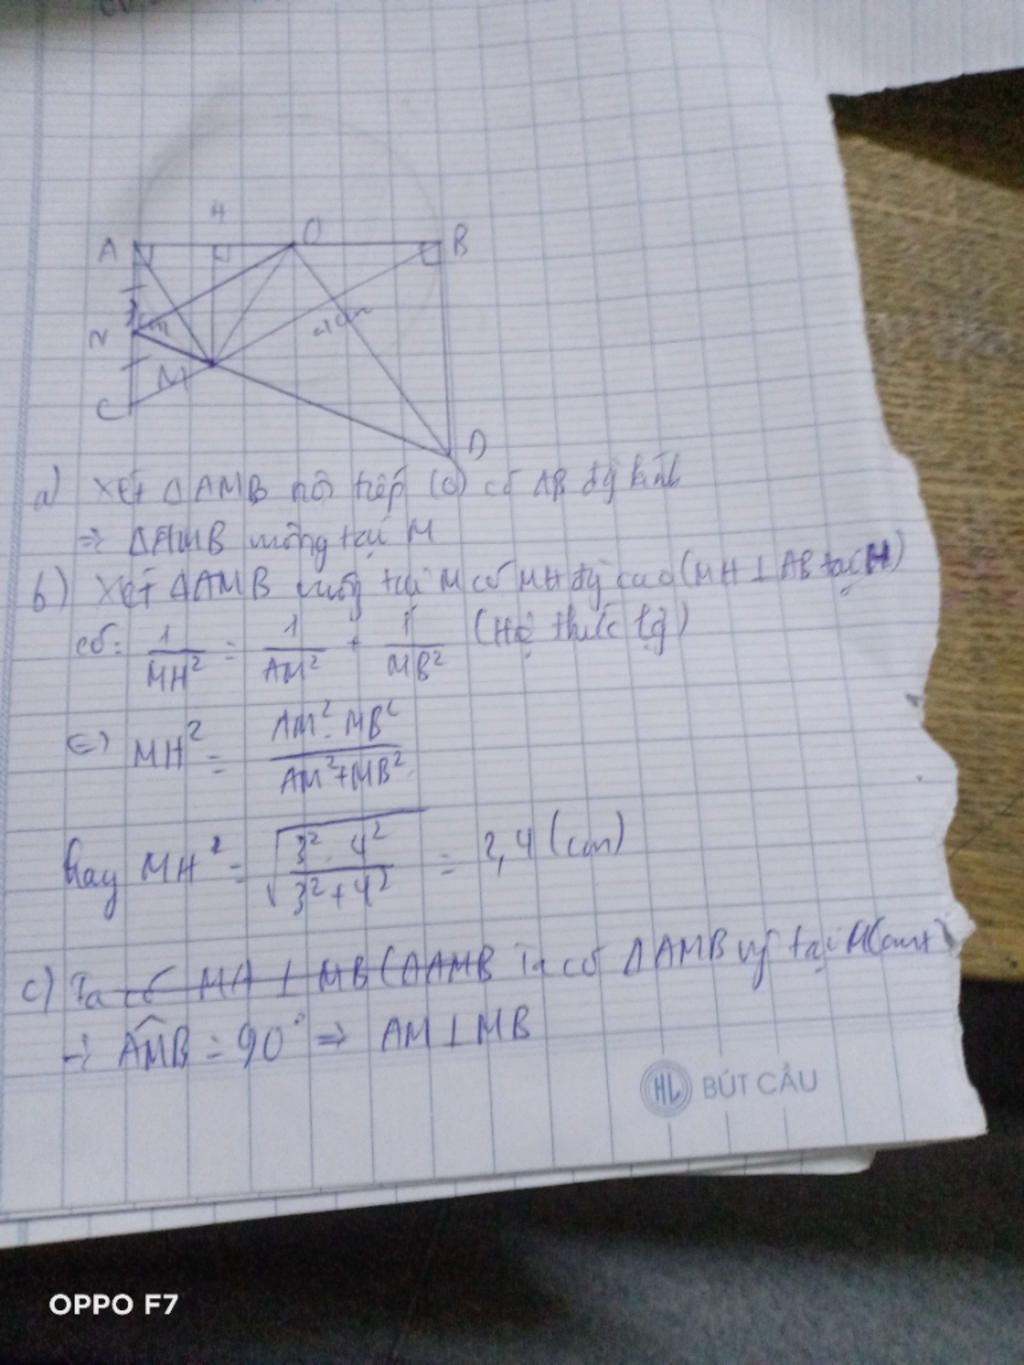 H
A O B
3cm
N 4cm
M
C
D
a) Xét ΔAMB nội tiếp (O) có AB đg kính
=> ΔAMB vuông tại M
b) Xét ΔAMB vuông tại M có MH đg cao (MH ⊥ AB tại H)
có: 1/MH² = 1/AM² + 1/MB² (Hệ thức lg)
<=> MH² = AM² . MB² / AM² + MB²
hay MH² = √(3² . 4² / 3² + 4²) = 2,4 (cm)
c) Ta có MA ⊥ MB (ΔAMB Ta có ΔAMB vg tại M (cmt)
=> AMB = 90° => AM ⊥ MB
HL BÚT CẦU
OPPO F7